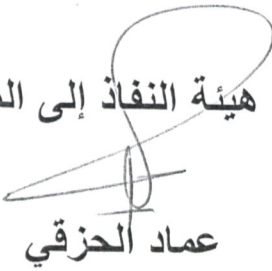 هيئة النفاذ إلى
عماد الحزقي